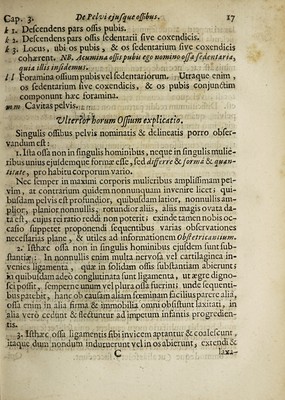 Cap. 3. De Pelvi ejusque ossibus. 17
k 1. Descendens pars ossis pubis.
k 2. Descendens pars ossis sedentarii sive coxendicis.
k 3. Locus, ubi os pubis, & os sedentarium sive coxendicis
cohærent. NB. Acumina ossis pubis ego nomino ossa sedentaria,
quia illis insidemus.
l l Foramina ossium pubis vel sedentariorum. Utraque enim,
os sedentarium sive coxendicis, & os pubis conjunctim
componunt hæc foramina.
mm Cavitas pelvis.
Ulterior horum Ossium explicatio.
Singulis ossibus pelvis nominatis & delineatis porro obser-
vandum est:
1. Ista ossa non in singulis hominibus, neque in singulis mulie-
ribus unius ejusdemque formæ esse, sed differre & formâ & quan-
titate, pro habitu corporum vario.
Nec semper in maximi corporis mulieribus amplissimam pel-
vim, at contrarium quidem nonnunquam invenire licet: qui-
busdam pelvis est profundior, quibusdam latior, nonnullis am-
plior, planior nonnullis, rotundior aliis, aliis magis ovata da-
ta est, cujus rei ratio reddi non poterit: exinde tamen nobis oc-
casio suppetet proponendi sequentibus varias observationes
necessarias plane, & utiles ad informationem obstetricantium.
2. Isthæc ossa non in singulis hominibus ejusdem sunt sub-
stantiæ: In nonnullis enim multa nervosa vel cartilaginea in-
venies ligamenta, quæ in solidam ossis substantiam abierunt:
in quibusdam adeò conglutinata sunt ligamenta, ut ægre digno-
sci possit, semperne unum vel plura ossa fuerint: unde sequenti-
bus patebit, hanc ob causam aliam feminam facilius parere aliâ,
ossa enim in aliâ firma & immobilia omni obsistunt laxitati, in
aliâ verò cedunt & flectuntur ad impetum infantis progredien-
tis.
3. Isthæc ossa ligamentis sibi invicem aptantur & coalescunt,
itaque dum nondum induruerunt vel in os abierunt, extendi &
C laxa-